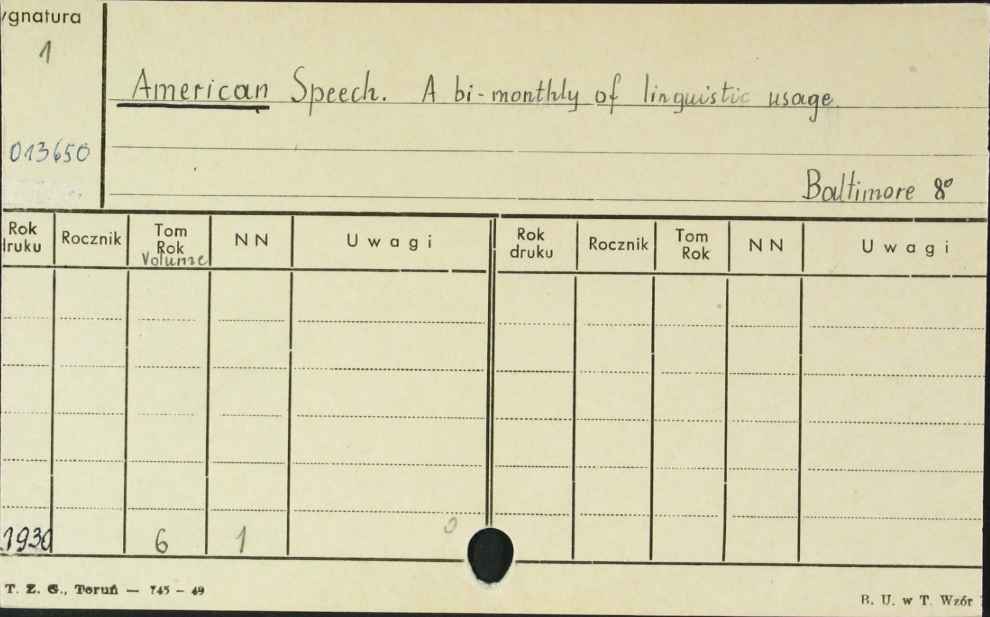 ygnatura
1
American Speech. A bi-monthly of linguistic usage
013650
Baltimore 8°
Rok druku Rocznik Tom Rok Volume NN Uwagi Rok druku Rocznik Tom Rok NN Uwagi
1930 6 1 0
T. Z. G., Toruń — 745 - 49
B. U. w T. Wzór